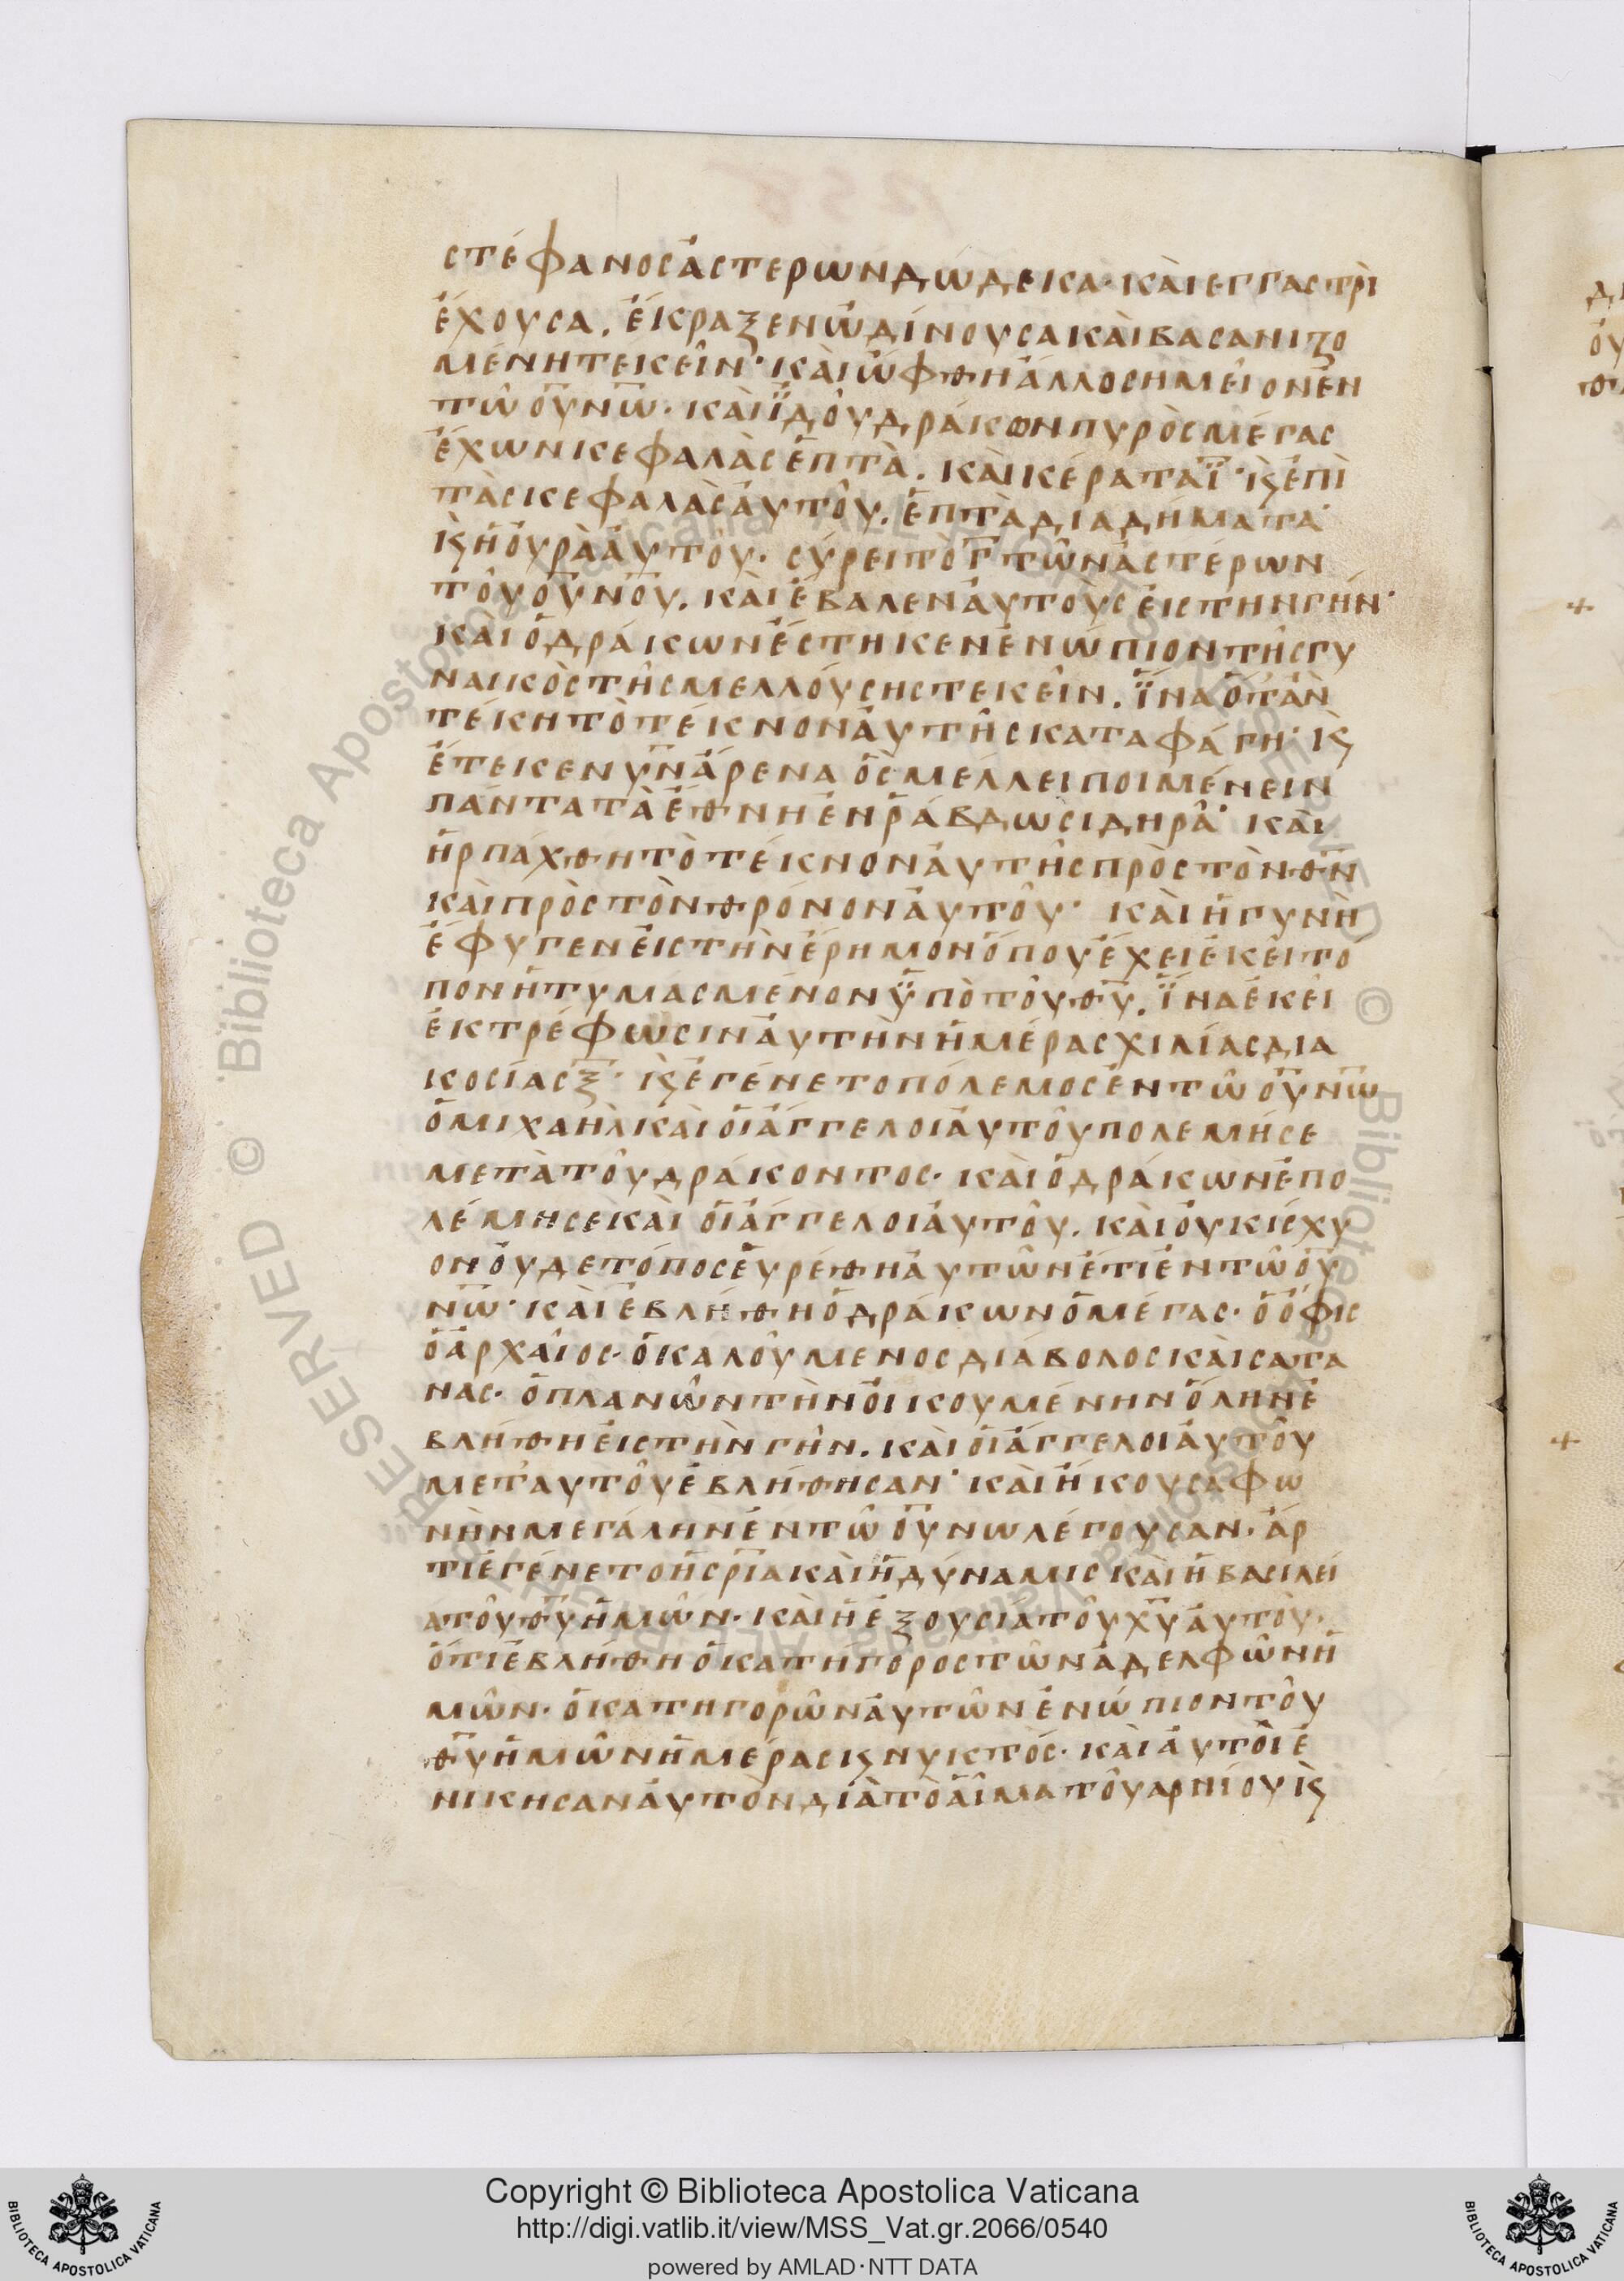 στέφανος ἀστερων δώδεκα· καὶ εγγαστρὶ
ἔχουσα. ἔκραξεν ὠδίνουσα καὶ βασανιζο
μένη τεκεῖν· καὶ ὤφθη ἄλλο σημεῖον ἐν
τῶ ου̅νω̅· καὶ ἰ̈δοὺ δράκων πυρὸς μέγας
ἔχων κεφαλὰς ἑπτὰ. καὶ κέρατα ϊ̅· κ̀ ἐπὶ
τὰς κεφαλὰς ἀυτοῦ. ἑπτὰ διαδήματα·
κ̀ ἡ ὀυρὰ ἀυτοῦ· σύρει τὸ γ̅ τῶν ἀστέρων
τοῦ ου̅νο̅υ. καὶ ἔβαλεν ἀυτοὺς ἐις την γήν·
και ὁ δράκων ἕστηκεν ἐνώπιον τῆς γυ
ναικὸς τῆς μελλούσης τεκεῖν. ἵ̈να ὅταν
τέκη τὸ τέκνον ἀυτῆς καταφάγη· κ̀
ἔτεκεν υ̅ν̅ ἄρενα ὃς μέλλει ποιμένειν
πάντα τὰ ἔθνη ἐν ῥάβδω σιδηρᾶ· καὶ
ἡρπάχθη τὸ τέκνον ἀυτῆς πρὸς τὸν θ̅ν̅
καὶ πρὸς τὸν θρόνον ἀυτοῦ· καὶ ἡ γυνὴ
ἔφυγεν ἐις τὴν ἔρημον ὅπου ἔχει ἐκεῖ τό
πον ἡτυμασμένον ὑ̈πὸ τοῦ θ̅υ̅. ἵ̈να ἐκεῖ
ἐκτρέφωσιν ἀυτὴν ἡμέρας χιλίας δια
κοσίας ξ̅· κ̀ ἐγένετο πόλεμος ἐν τῶ ου̅νω̅
ὁ μιχαὴλ καὶ οἱ ἄγγελοι ἀυτοῦ πολεμῆσε
μετὰ τοῦ δράκοντος· καὶ ὁ δράκων ἐπο
λέμησε καὶ οἱ ἄγγελοι ἀυτοῦ. καὶ ὀυκ ισχυ
ον ὀυδε τόπος ἑυρέθη ἀυτῶν ἔτι ἐν τῶ ου̅
νω̅· καὶ ἐβλήθη ὁ δράκων ὁ μέγας· ὁ ὄφις
ὁ ἀρχαῖος· ὁ καλούμενος διάβολος καὶ σατα
νας· ὁ πλανῶν τὴν ὀικουμένην ὅλην ἐ
βλήθη ἐις τὴν γῆν. καὶ οἱ ἄγγελοι ἀυτοῦ
μετ' αυτοῦ ἐβλήθησαν· καὶ ἤκουσα φω
νὴν μεγάλην ἐν τῶ ου̅νω λέγουσαν· ἄρ
τι ἐγένετο ἡ σ̅ρ̅ια καὶ ἡ δύναμις καὶ ἡ βασιλεί
α τοῦ θ̅υ̅ ἡμῶν· καὶ ἡ ἐξουσία τοῦ χ̅υ̅ ἀυτοῦ·
ὅτι ἐβλήθη ὁ κατήγορος τῶν ἀδελφῶν ἡ
μῶν· ὁ κατηγορῶν ἀυτῶν ἐνώπιον τοῦ
θ̅υ̅ ἡμῶν ἡμέρας κ̀ νυκτός· καὶ ἀυτοὶ ἐ
νικησαν ἀυτὸν διὰ τὸ ἁῖμα τοῦ αρνίου κ̀
Copyright © Biblioteca Apostolica Vaticana
http://digi.vatlib.it/view/MSS_Vat.gr.2066/0540
powered by AMLAD·NTT DATA